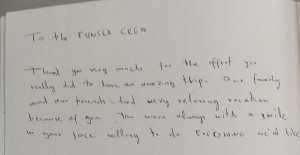 To the FUNSEA CREW
Thank you very much for the effort you
really did to have an amazing trip. Our family
and our friends had very relaxing vacation
because of you. You were always with a smile
in your face willing to do EVERYTHING we'd like